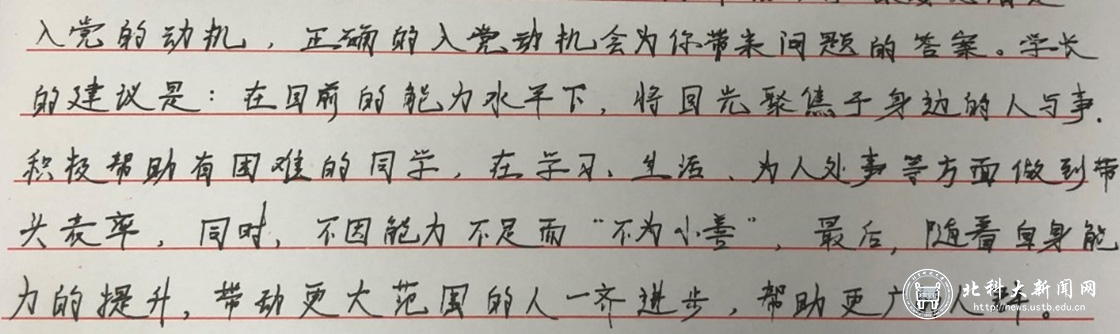 入党的动机，正确的入党动机会为你带来问题的答案。学长
的建议是：在目前的能力水平下，将目光聚焦于身边的人与事，
积极帮助有困难的同学，在学习、生活、为人处事等方面做到带
头表率，同时，不因能力不足而“不为小善”，最后，随着自身能
力的提升，带动更大范围的人一齐进步，帮助更广
北科大新闻网
http://news.ustb.edu.cn